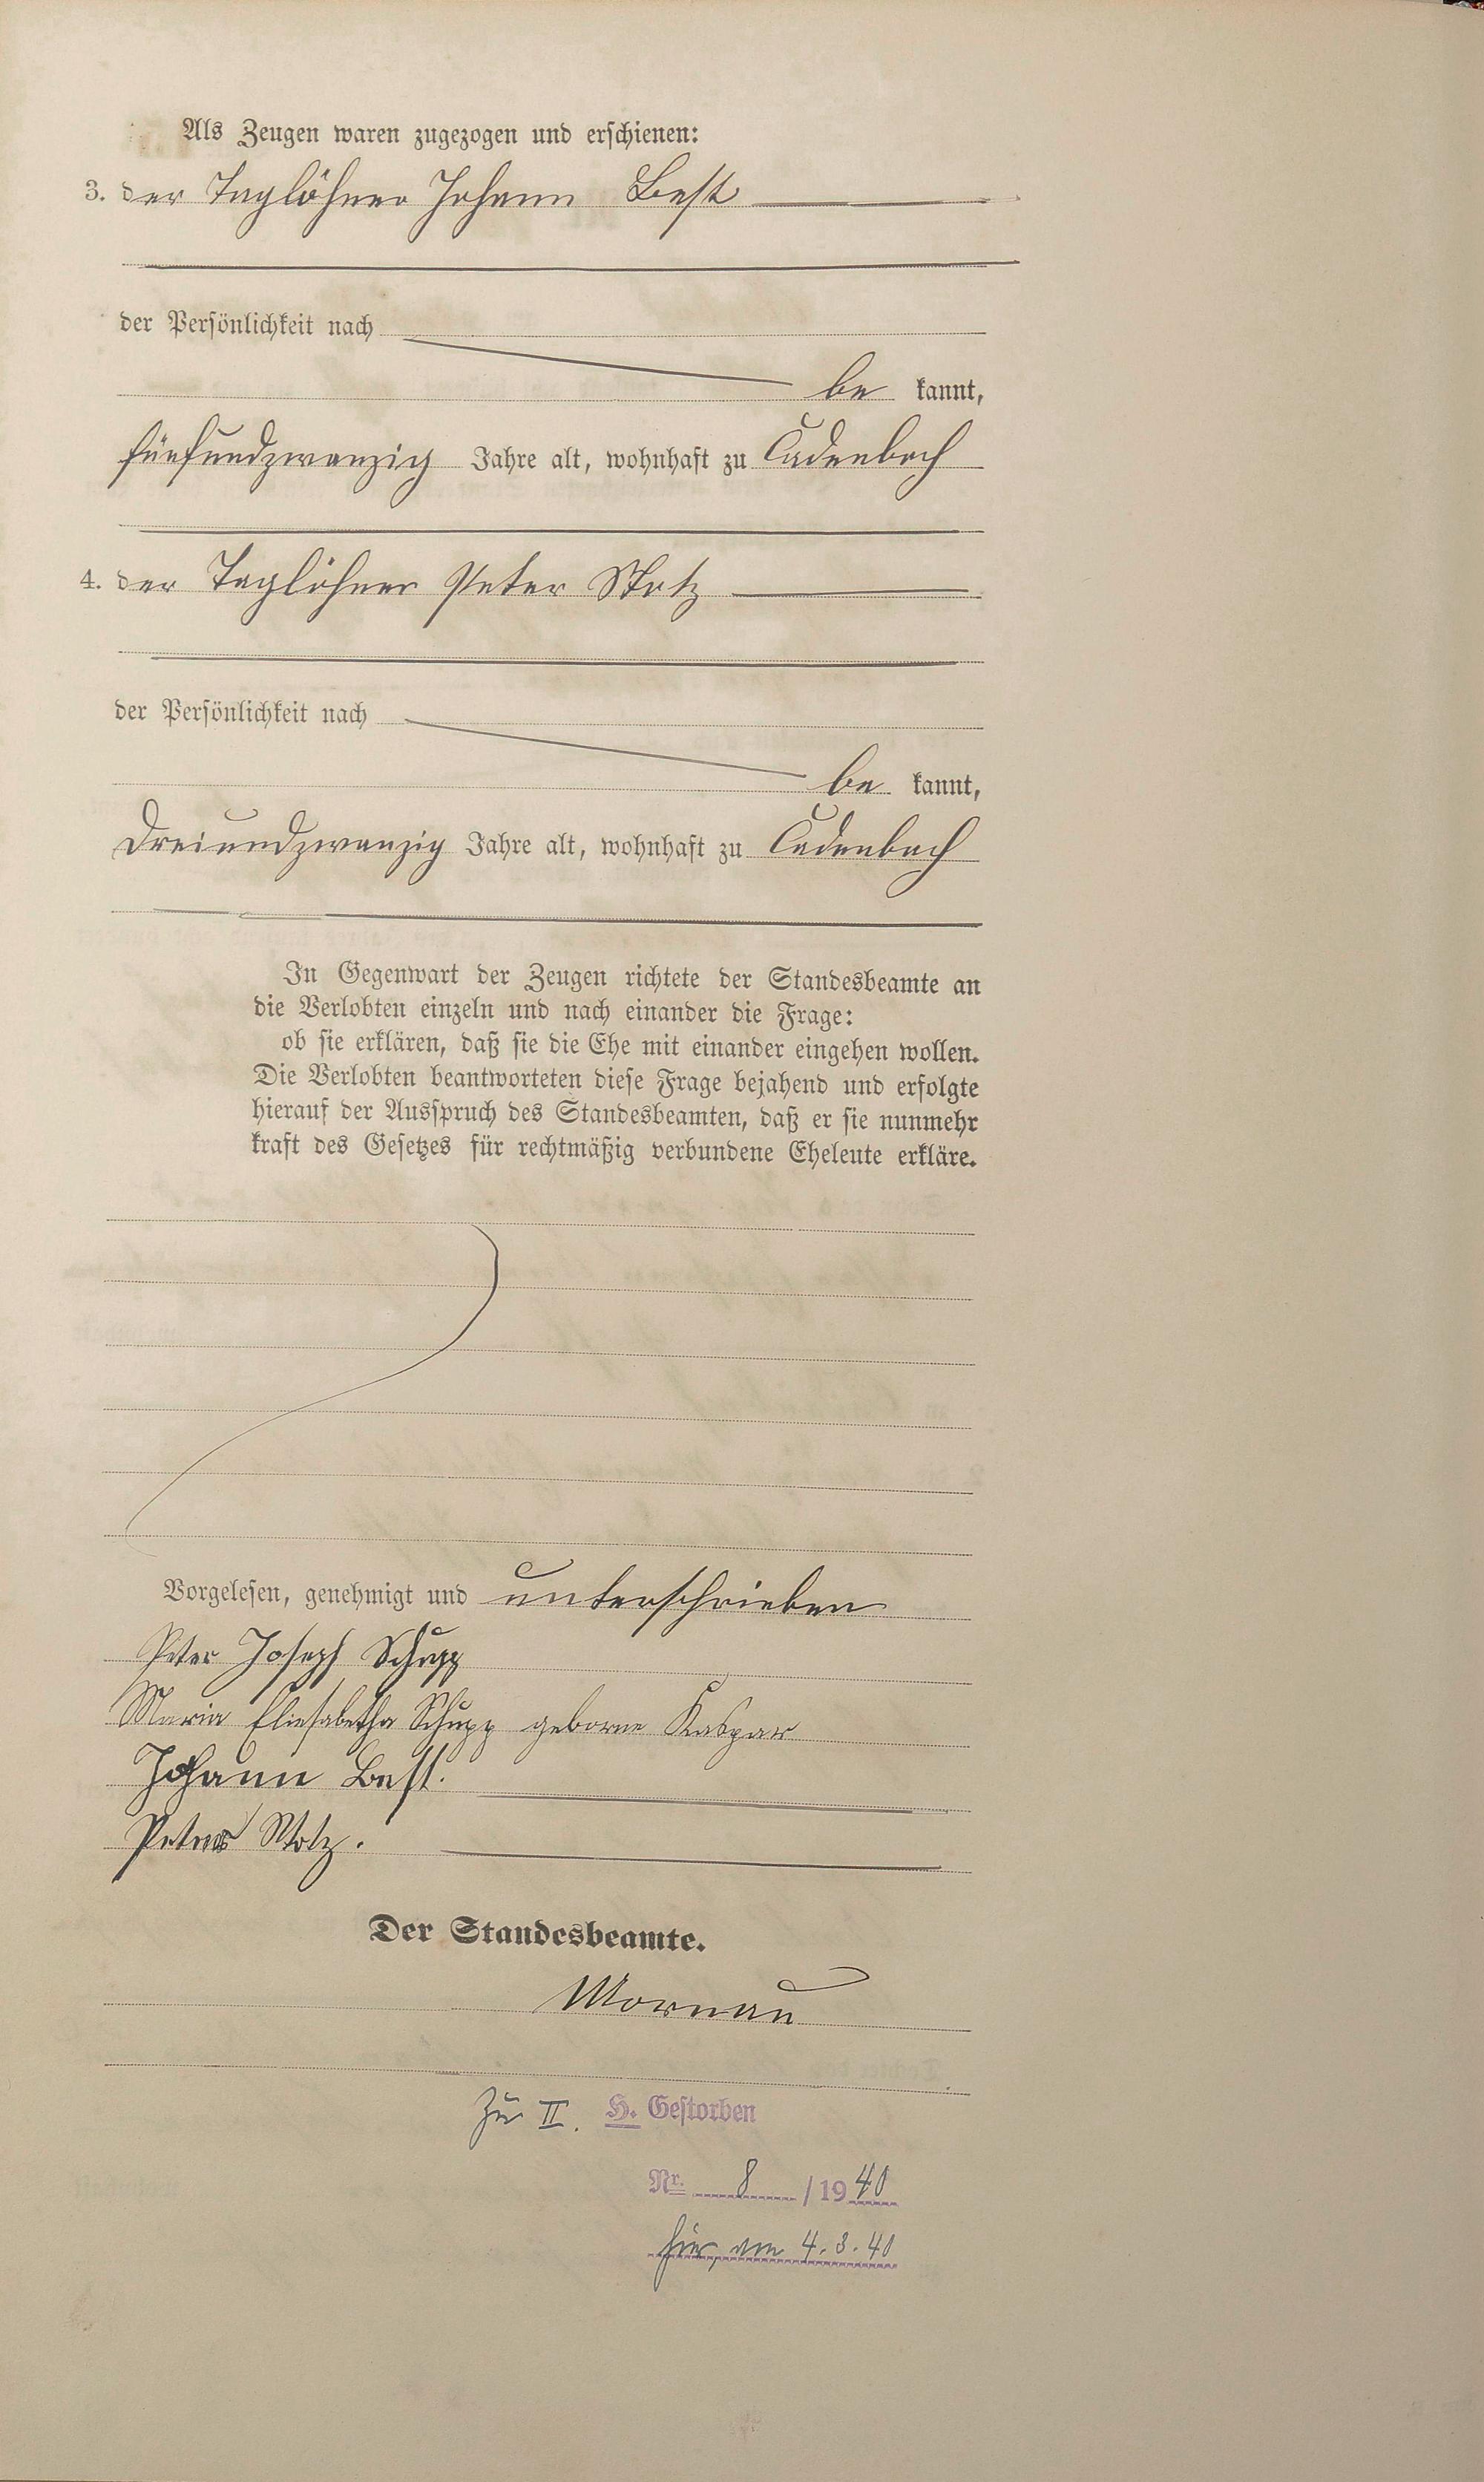 Als Zeugen waren zugezogen und erschienen:
3. der Taglöhner Johann Best
der Persönlichkeit nach
be kannt,
fünfundzwanzig Jahre alt, wohnhaft zu Cadenbach
4. der Taglöhner Peter Stotz
der Persönlichkeit nach
be kannt,
dreiundzwanzig Jahre alt, wohnhaft zu Cadenbach
In Gegenwart der Zeugen richtete der Standesbeamte an
die Verlobten einzeln und nach einander die Frage:
ob sie erklären, daß sie die Ehe mit einander eingehen wollen.
Die Verlobten beantworteten diese Frage bejahend und erfolgte
hierauf der Ausspruch des Standesbeamten, daß er sie nunmehr
kraft des Gesetzes für rechtmäßig verbundene Eheleute erkläre.
Vorgelesen, genehmigt und unterschrieben
Peter Joseph Schupp
Maria Eliesabetha Schupp geborne Kaspar
Johann Best.
Peter Stotz.
Der Standesbeamte.
Mornau
Zu II. H. Gestorben
Nr. 8 /1940
hier, am 4.3.40